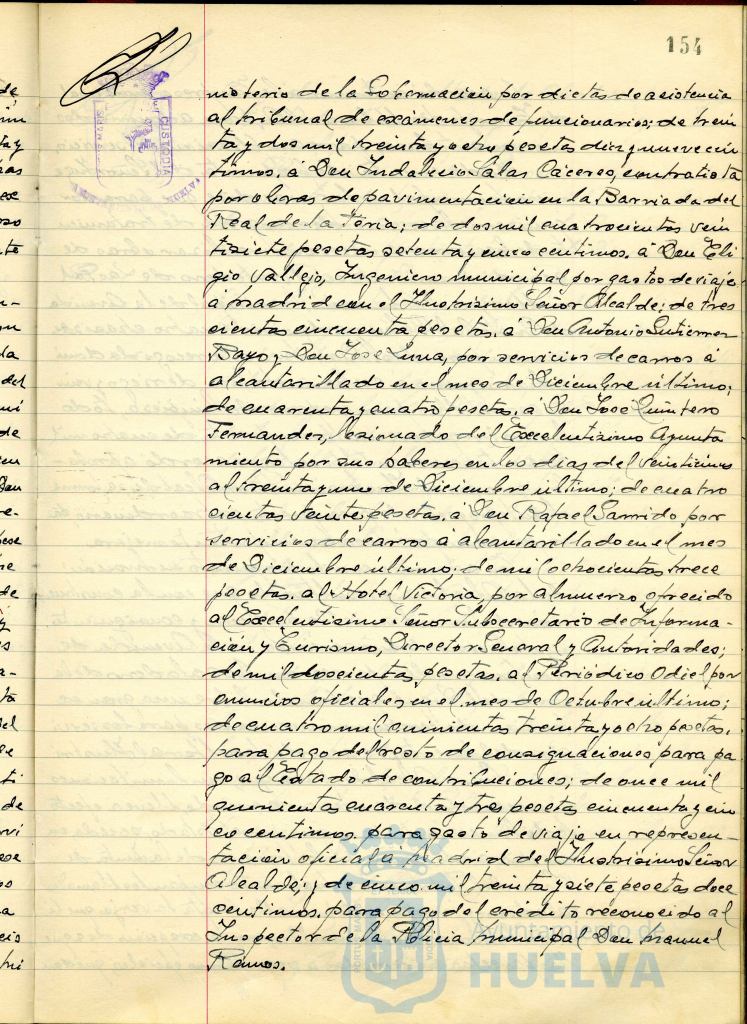 154
nisterio de la Gobernacion, por dietas de asistencia
al tribunal de exámenes de funcionarios; de trein
ta y dos mil treinta y ocho pesetas diez y nueve cén
timos, á Don Indalecio Salas Cáceres, contratista
por obras de pavimentación en la Barriada del
Real de la Feria; de dos mil cuatrocientas vein
tisiete pesetas setenta y cinco céntimos, á Don Eli
gio Vallejo, Ingeniero municipal por gastos de viaje
á Madrid con el Ilustrisimo Señor Alcalde; de tres
cientas cincuenta pesetas, á Don Antonio Gutierrez
Bayo y Don José Luna, por servicios de carros á
alcantarillado en el mes de Diciembre último;
de cuarenta y cuatro pesetas, á Don José Quintero
Fernandez, lesionado del Excelentisimo Ayunta
miento por sus haberes en los dias del veintiuno
al treinta y uno de Diciembre último; de cuatro
cientas veinte pesetas, á Don Rafael Garrido por
servicios de carros á alcantarillado en el mes
de Diciembre último; de mil ochocientas trece
pesetas, al Hotel Victoria, por almuerzo ofrecido
al Excelentisimo Señor Subsecretario de Informa-
ción y Turismo, Director General y Autoridades;
de mil doscientas pesetas, al Periódico Odiel por
anuncios oficiales en el mes de Octubre último;
de cuatro mil quinientas treinta y ocho pesetas,
para pago del resto de consignaciones para pa
go al Estado de contribuciones; de once mil
quinientas cuarenta y tres pesetas cincuenta y cin
co centimos, para gasto de viaje en represen-
tación oficial á Madrid del Ilustrisimo Señor
Alcalde; y de cinco mil treinta y siete pesetas doce
céntimos, para pago del crédito reconocido al
Inspector de la Policia municipal Don Manuel
Ramos.
Ayuntamiento de
HUELVA